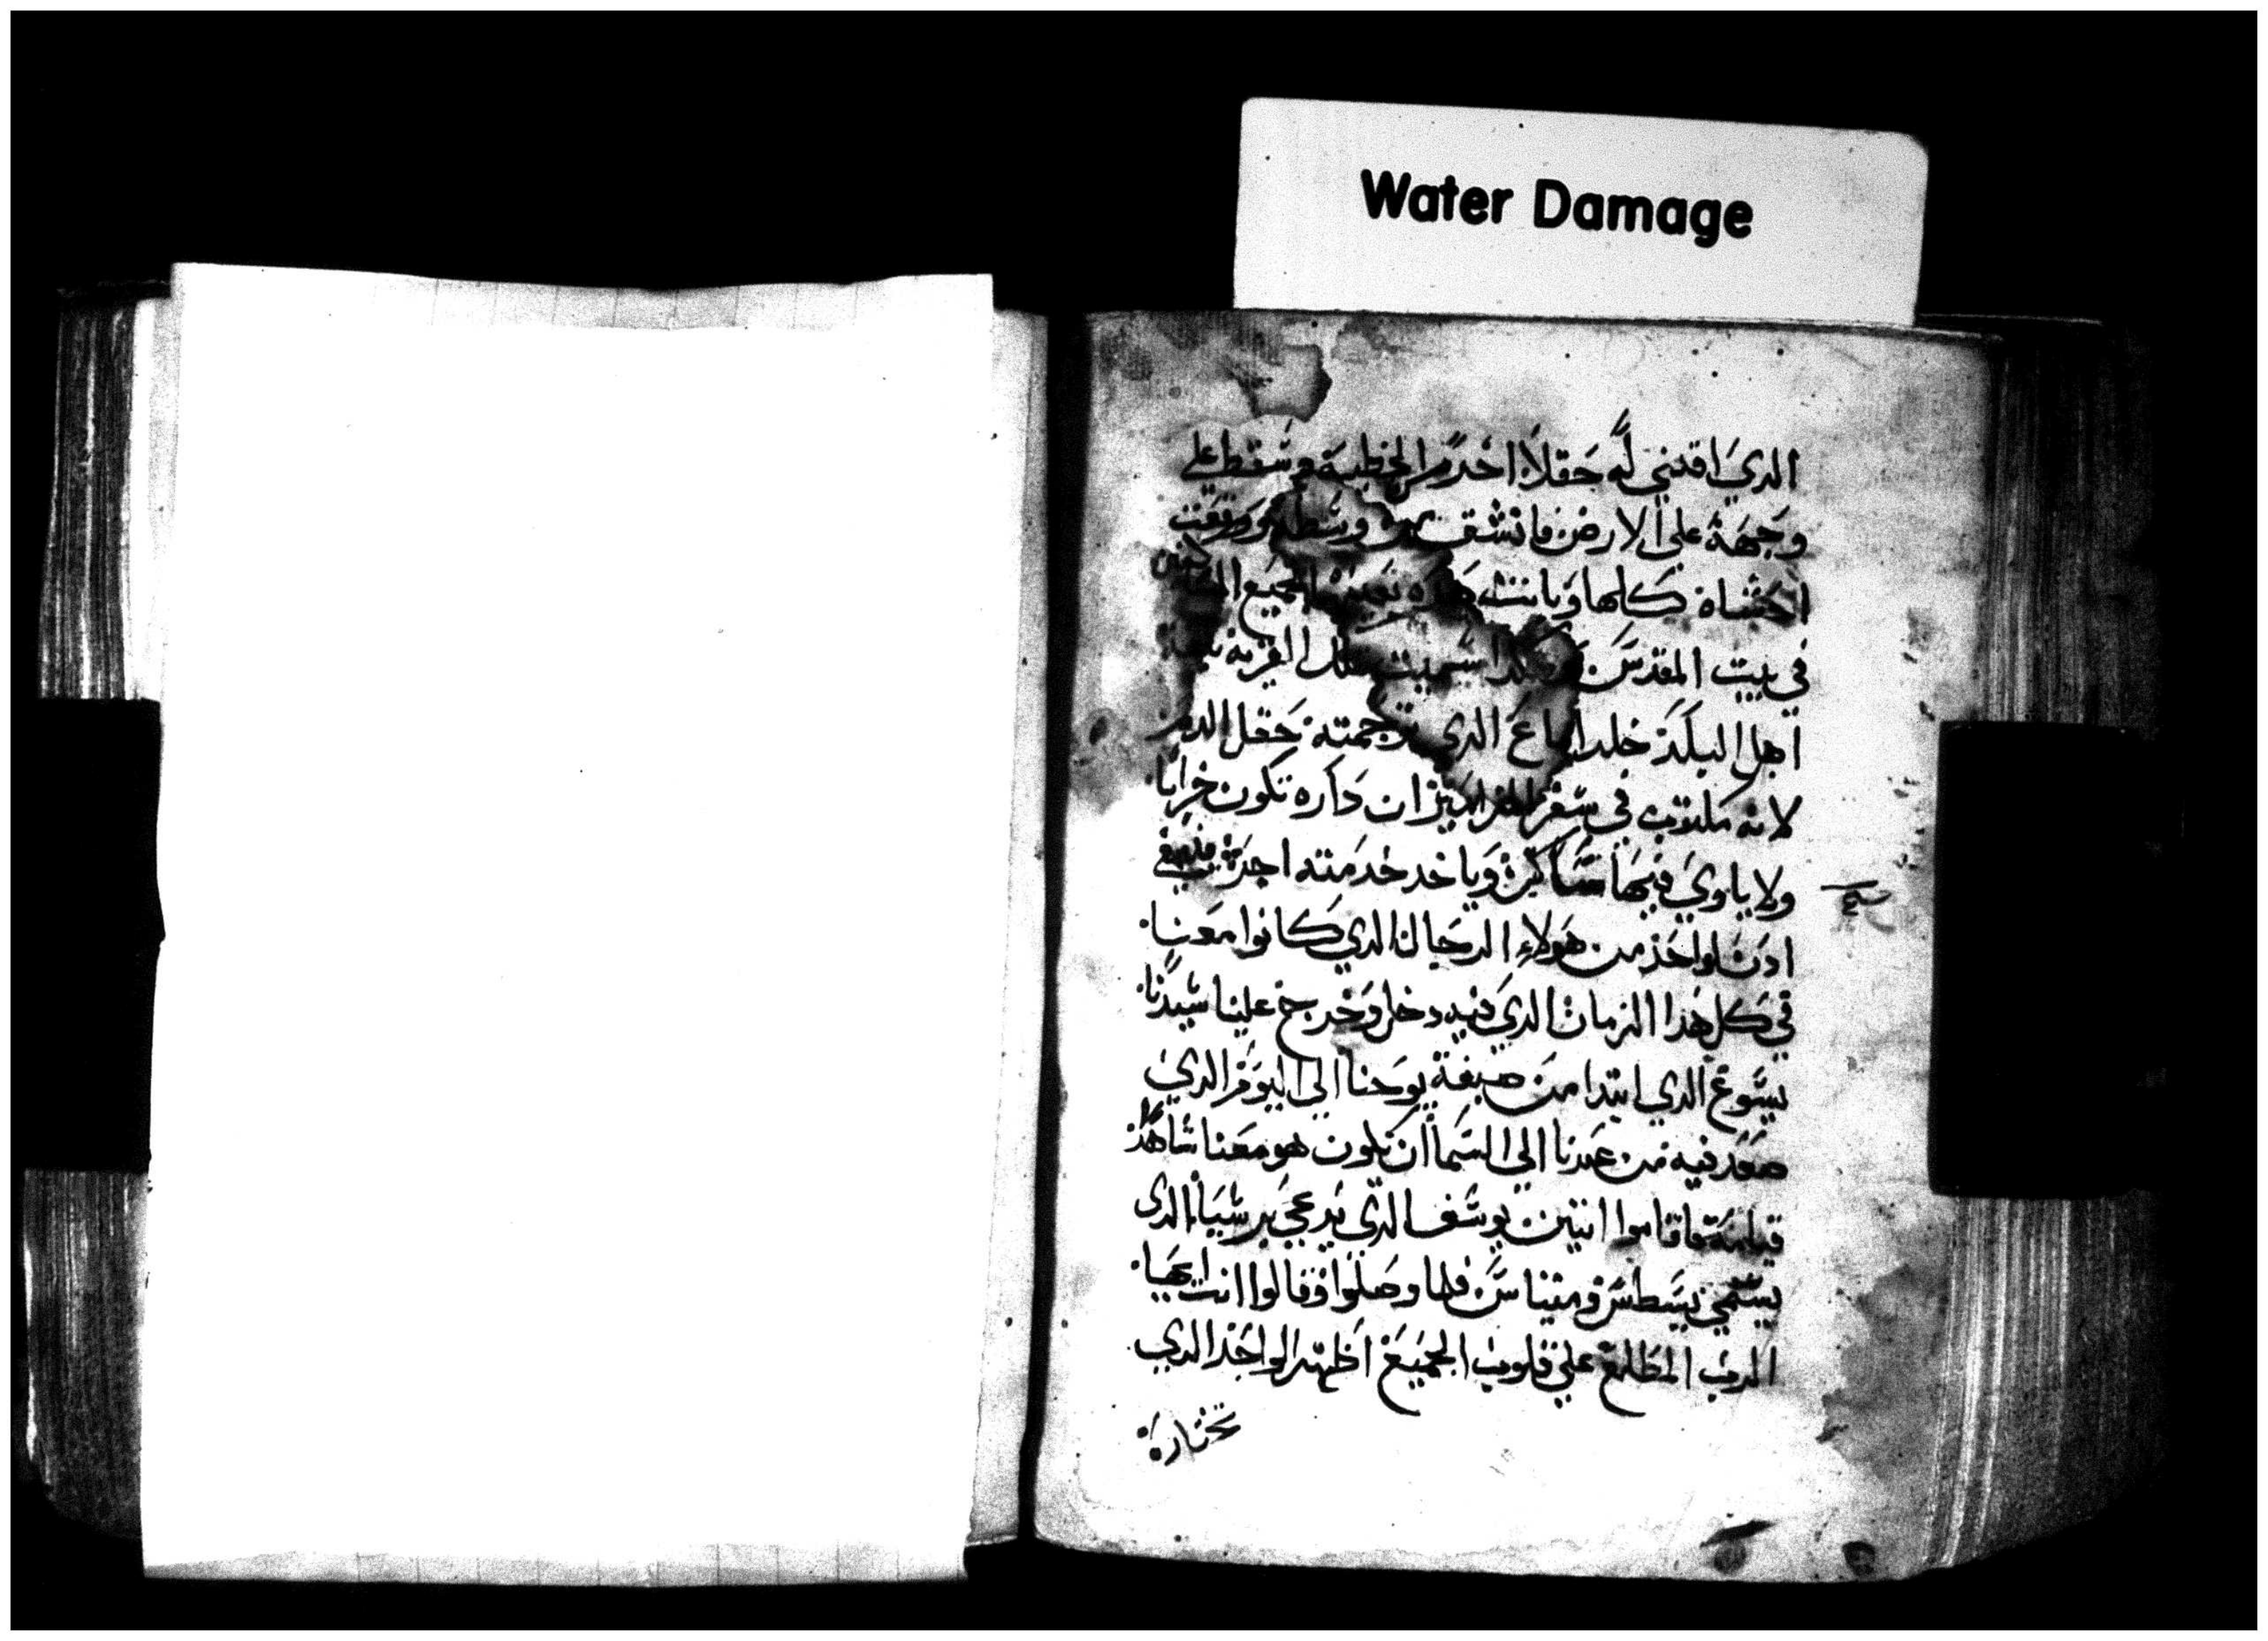 Water Damage
الدي اقتني له حقلا من اجرة الخطية وسقط علي
وجهه علي الارض فانشق من وسطه ووقعت
احشاه كلها وبانت هده بعينها لجميع الساكنين
في بيت المقدس هكدا سميت تلك القرية بلغة
اهل البلد حلداماغ الدي ترجمته حقل الدم
لانه مكتوب في سفر المزامير ان داره تكون خرابا
ولا ياوي فيها ساكن وياخد خدمته اخر فينبغي
ادن لواحد من هولاء الرجال الدي كانوا معنا
في كل هدا الزمان الدي فيه دخل وخرج علينا سيدنا
يسوع الدي ابتدا من صبغة يوحنا الي اليوم الدي
صعد فيه من عندنا الي السما ان يكون هو معنا شاهد
قيامته فاقاموا اتنين يوسف الدي يدعي برشبا الدي
يسمي يسطس ومتياس فلما وصلوا وقالوا انت ايها
الرب المطلع علي قلوب الجميع اظهر الواحد الدي
تختاره